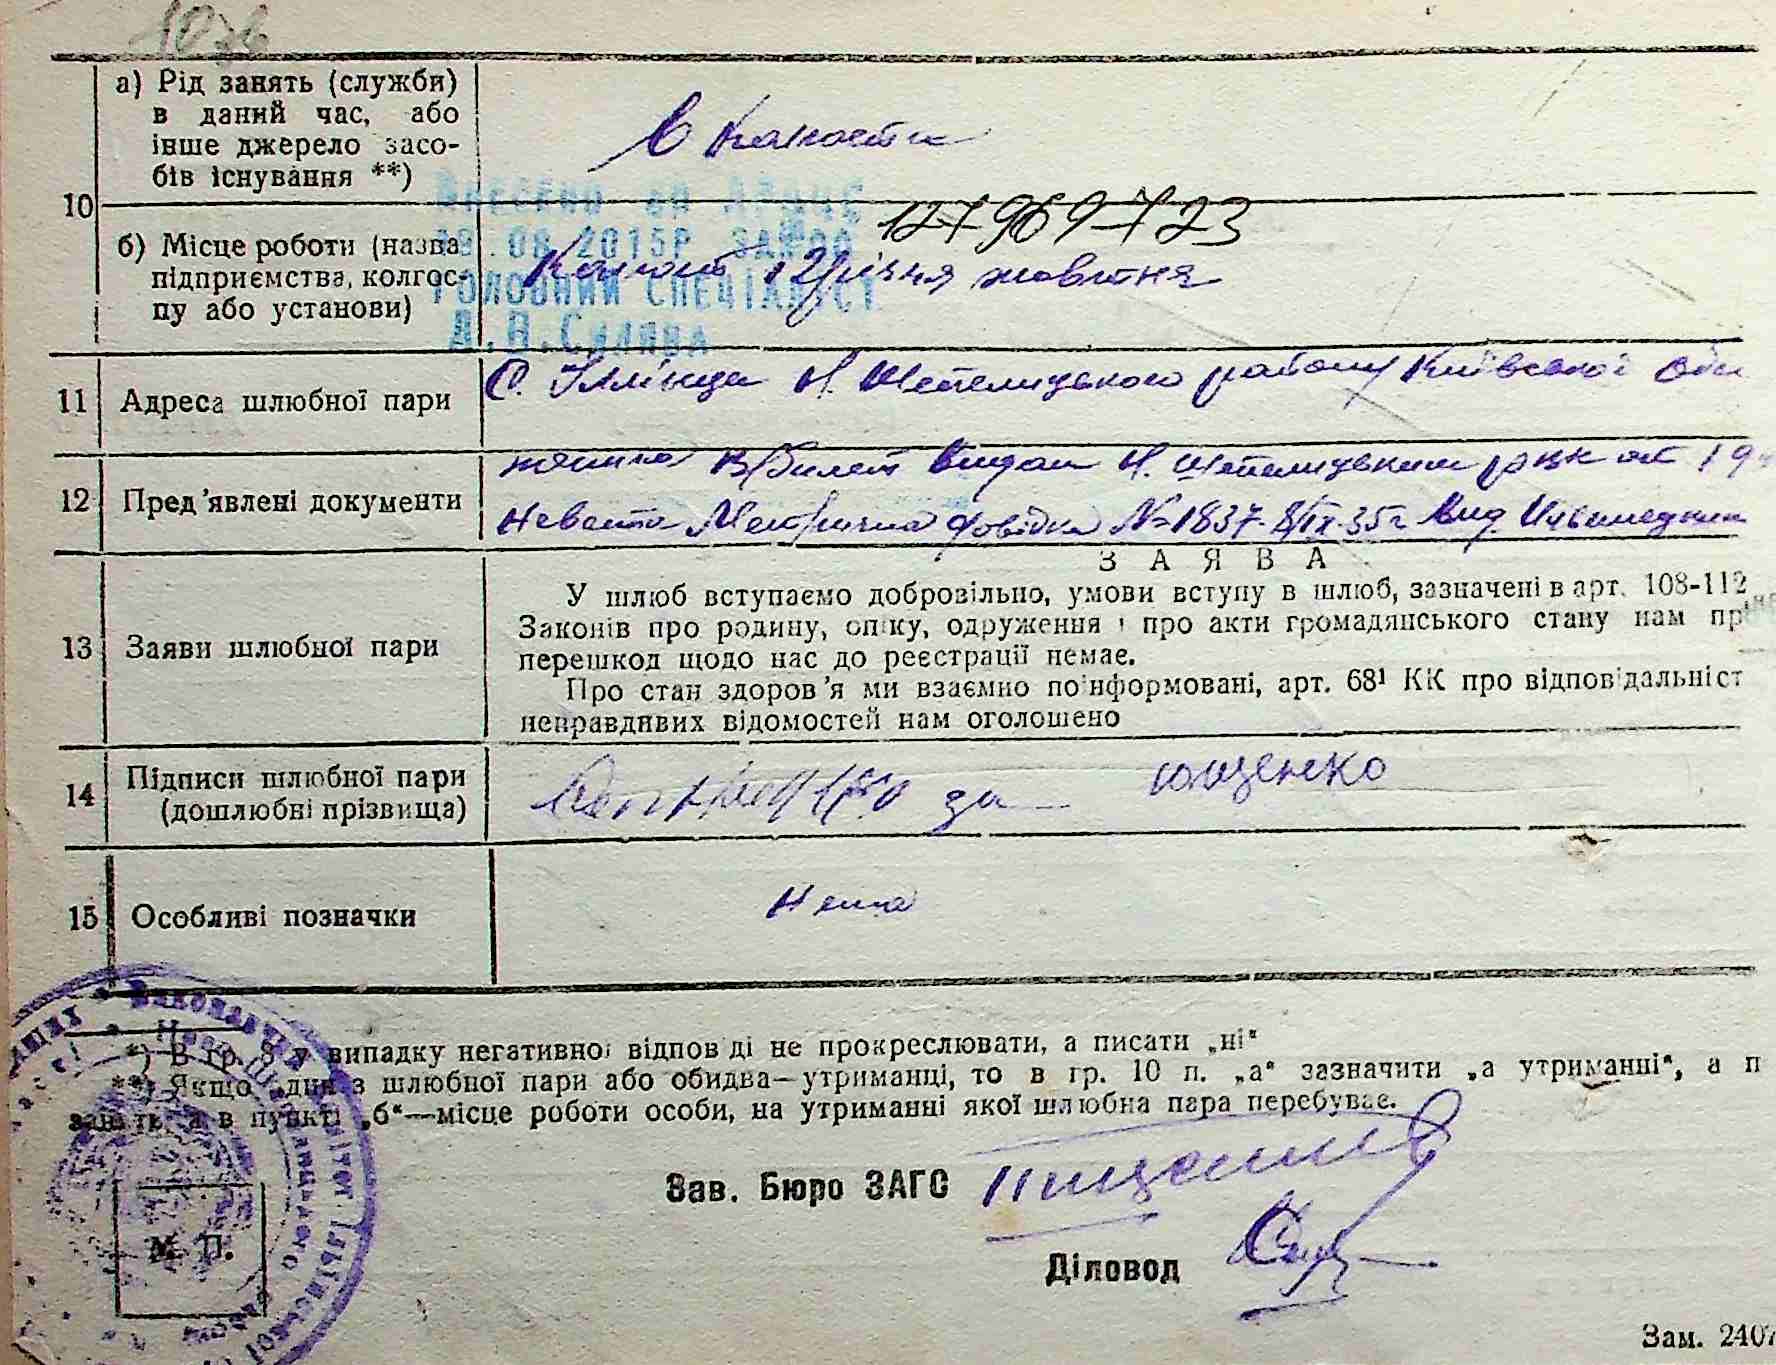 а) Рід занять (служби)
в даний час, або
інше джерело засо-
бів існування **)
в Колгоспи
10
б) Місце роботи (назва
підприємства, колгос-
пу або установи)
127969723
08.2015Р
ГОЛОВНИЙ СПЕЦІАЛІСТ
Колгосп 12 річчя жовтня
11 Адреса шлюбної пари
С. Іллінці Н. Шепелицького району Київської Обл
12 Пред'явлені документи
В/билет Видан Н. Шепелицьким рвк от 19
Невеста Метрична довідка №1837 8/IX-35г Вид.
13 Заяви шлюбної пари
ЗАЯВА
У шлюб вступаємо добровільно, умови вступу в шлюб, зазначені в арт. 108-112
Законів про родину, опіку, одруження і про акти громадянського стану нам
перешкод щодо нас до реєстрації немає.
Про стан здоров'я ми взаємно поінформовані, арт. 68¹ КК про відповідальніст
неправдивих відомостей нам оголошено
14 Підписи шлюбної пари
(дошлюбні прізвища)
за ющенко
15 Особливі позначки
Нема
*) В гр. 8 у випадку негативної відповіді не прокреслювати, а писати „ні"
**) Якщо один з шлюбної пари або обидва—утриманці, то в гр. 10 п. „а" зазначити „а утриманні", а п
а в пункті „б"—місце роботи особи, на утриманні якої шлюбна пара перебуває.
Зав. Бюро ЗАГС
Діловод
М. П.
Зам. 2407